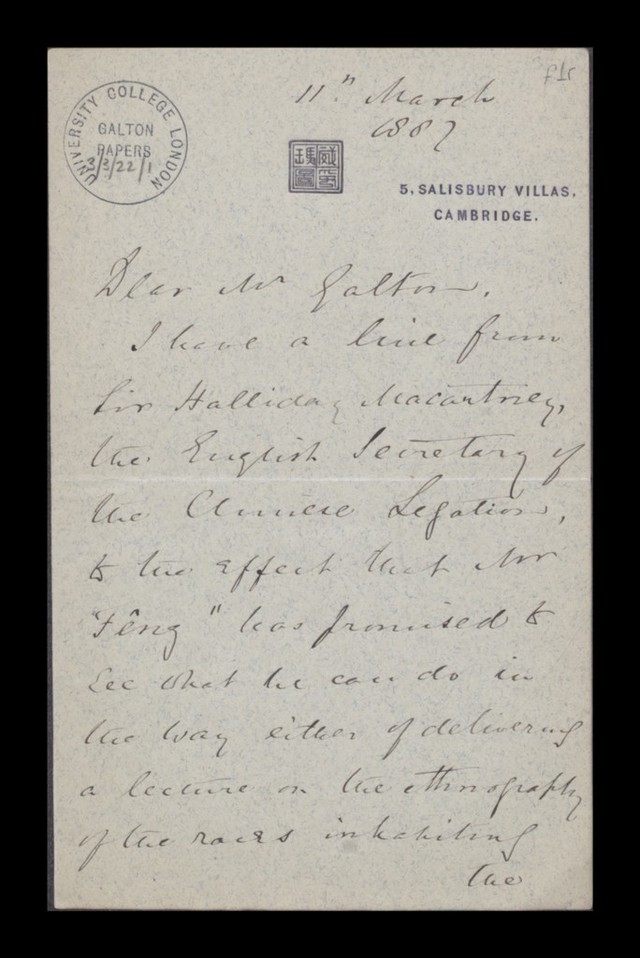 f1r
UNIVERSITY COLLEGE LONDON
GALTON
PAPERS
3/3/22/1
11th March
1887
威瑪
5, SALISBURY VILLAS,
CAMBRIDGE.
Dear Mr Galton,
I have a line from
Sir Halliday Macartney,
the English Secretary of
the Chinese Legation,
to the effect that Mr
"Fêng" has promised to
see what he can do in
the way either of delivering
a lecture on the ethnography
of the races inhabiting
the